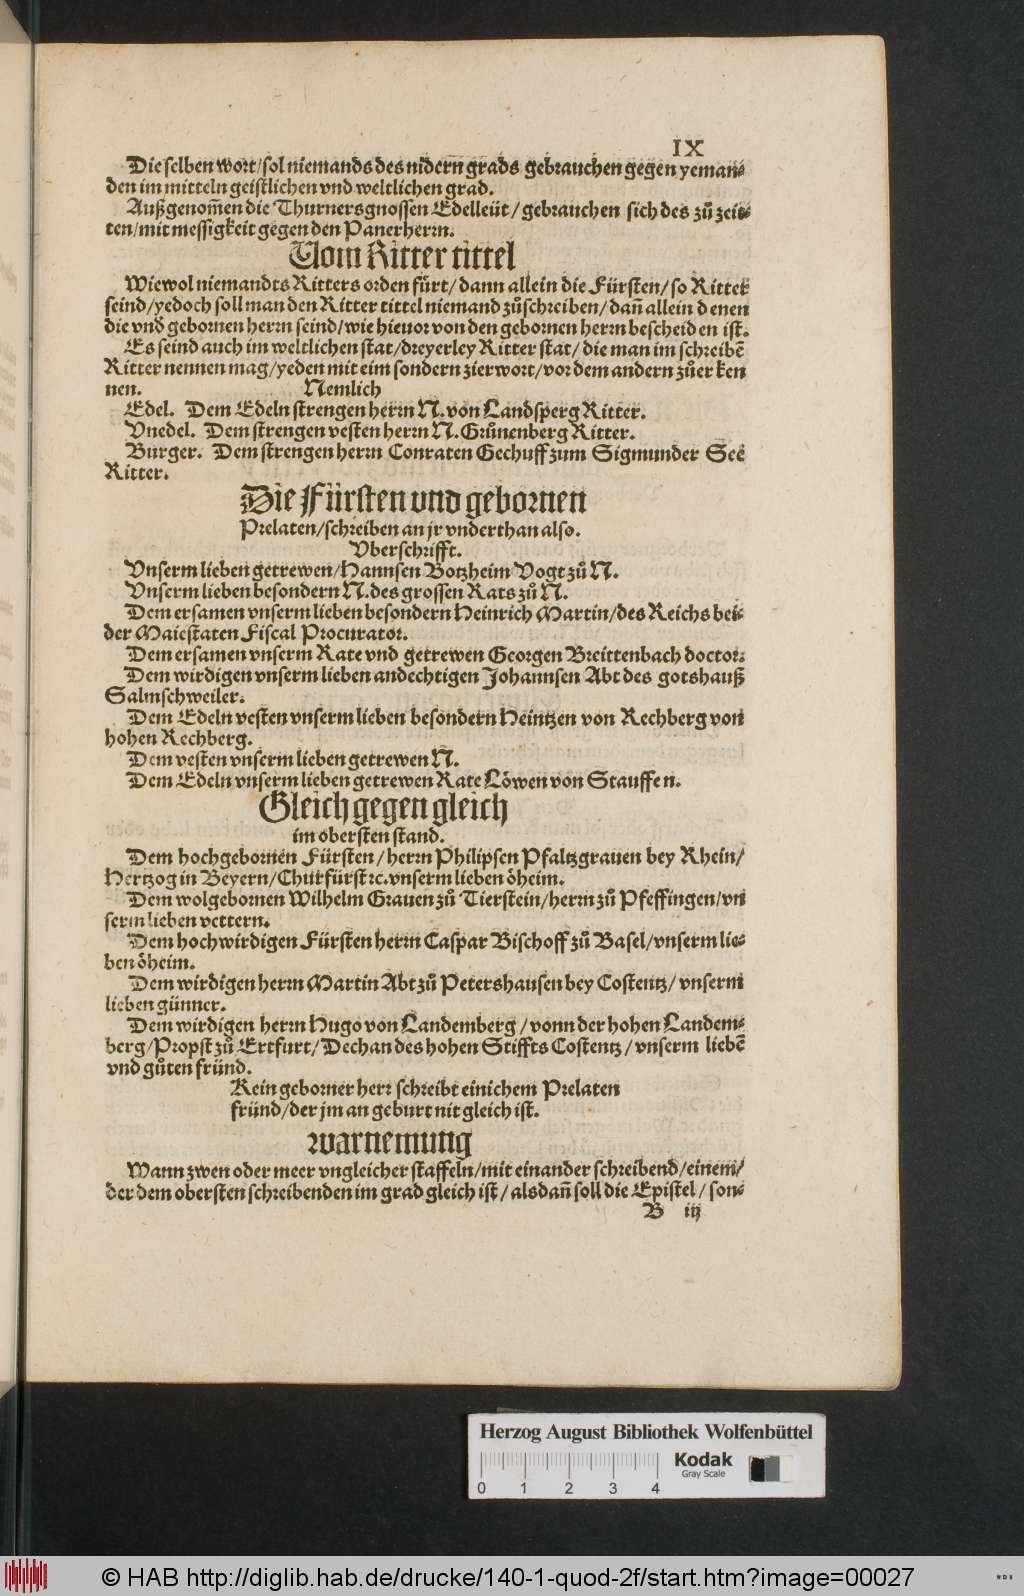 IX
Die selben wort/sol niemands des nidern̄ grads gebrauchen gegen yeman⸗
den im mitteln geistlichen vnd weltlichen grad.
Außgenom̄en die Thurnersgnossen Edelleüt/gebrauchen sich des zů zei⸗
ten/mit messigkeit gegen den Panerherrn.
Vom Ritter tittel
Wiewol niemandts Ritters orden fürt/dann allein die Fürsten/so Ritter
seind/yedoch soll man den Ritter tittel niemand zůschreiben/dan̄ allein denen
die vnd gebornen herrn seind/wie hieuor von den gebornen herrn bescheiden ist.
Es seind auch im weltlichen stat/dreyerley Ritter stat/die man im schreibē
Ritter nennen mag/yeden mit eim sondern zierwort/vor dem andern zůerken
nen. Nemlich
Edel. Dem Edeln strengen herrn N. von Landsperg Ritter.
Vnedel. Dem strengen vesten herrn N. Grůnenberg Ritter.
Burger. Dem strengen herrn Conraten Gechuff zum Sigmunder Seē
Ritter.
Die Fürsten vnd gebornen
Prelaten/schreiben an jr vnderthan also.
Vberschrifft.
Vnserm lieben getrewen/Hannsen Botzheim Vogt zů N.
Vnserm lieben besondern N. des grossen Rats zů N.
Dem ersamen vnserm lieben besondern Heinrich Martin/des Reichs bei⸗
der Maiestaten Fiscal Procurator.
Dem ersamen vnserm Rate vnd getrewen Georgen Breittenbach doctor.
Dem wirdigen vnserm lieben andechtigen Johannsen Abt des gotshauß
Salmschweiler.
Dem Edeln vesten vnserm lieben besondern Heintzen von Rechberg von
hohen Rechberg.
Dem vesten vnserm lieben getrewen N.
Dem Edeln vnserm lieben getrewen Rate Löwen von Stauffen.
Gleich gegen gleich
im obersten stand.
Dem hochgebornen Fürsten/herrn Philipsen Pfaltzgrauen bey Rhein/
Hertzog in Beyern/Churfürst ⁊c. vnserm lieben öheim.
Dem wolgebornen Wilhelm Grauen zů Tierstein/herrn zů Pfeffingen/vn
serm lieben vettern.
Dem hochwirdigen Fürsten herrn Caspar Bischoff zů Basel/vnserm lie⸗
ben öheim.
Dem wirdigen herrn Martin Abt zů Petershausen bey Costentz/vnserm
lieben günner.
Dem wirdigen herrn Hugo von Landemberg/vonn der hohen Landem⸗
berg/Propst zů Ertfurt/Dechan des hohen Stiffts Costentz/vnserm liebē
vnd gůten fründ.
Kein geborner herr schreibt einichem Prelaten
fründ/der jm an geburt nit gleich ist.
Warnemung
Wann zwen oder meer vngleicher staffeln/mit einander schreibend/einem/
der dem obersten schreibenden im grad gleich ist/alsdan̄ soll die Epistel/son⸗
B iij
Herzog August Bibliothek Wolfenbüttel
Kodak
Gray Scale
0 1 2 3 4
© HAB http://diglib.hab.de/drucke/140-1-quod-2f/start.htm?image=00027